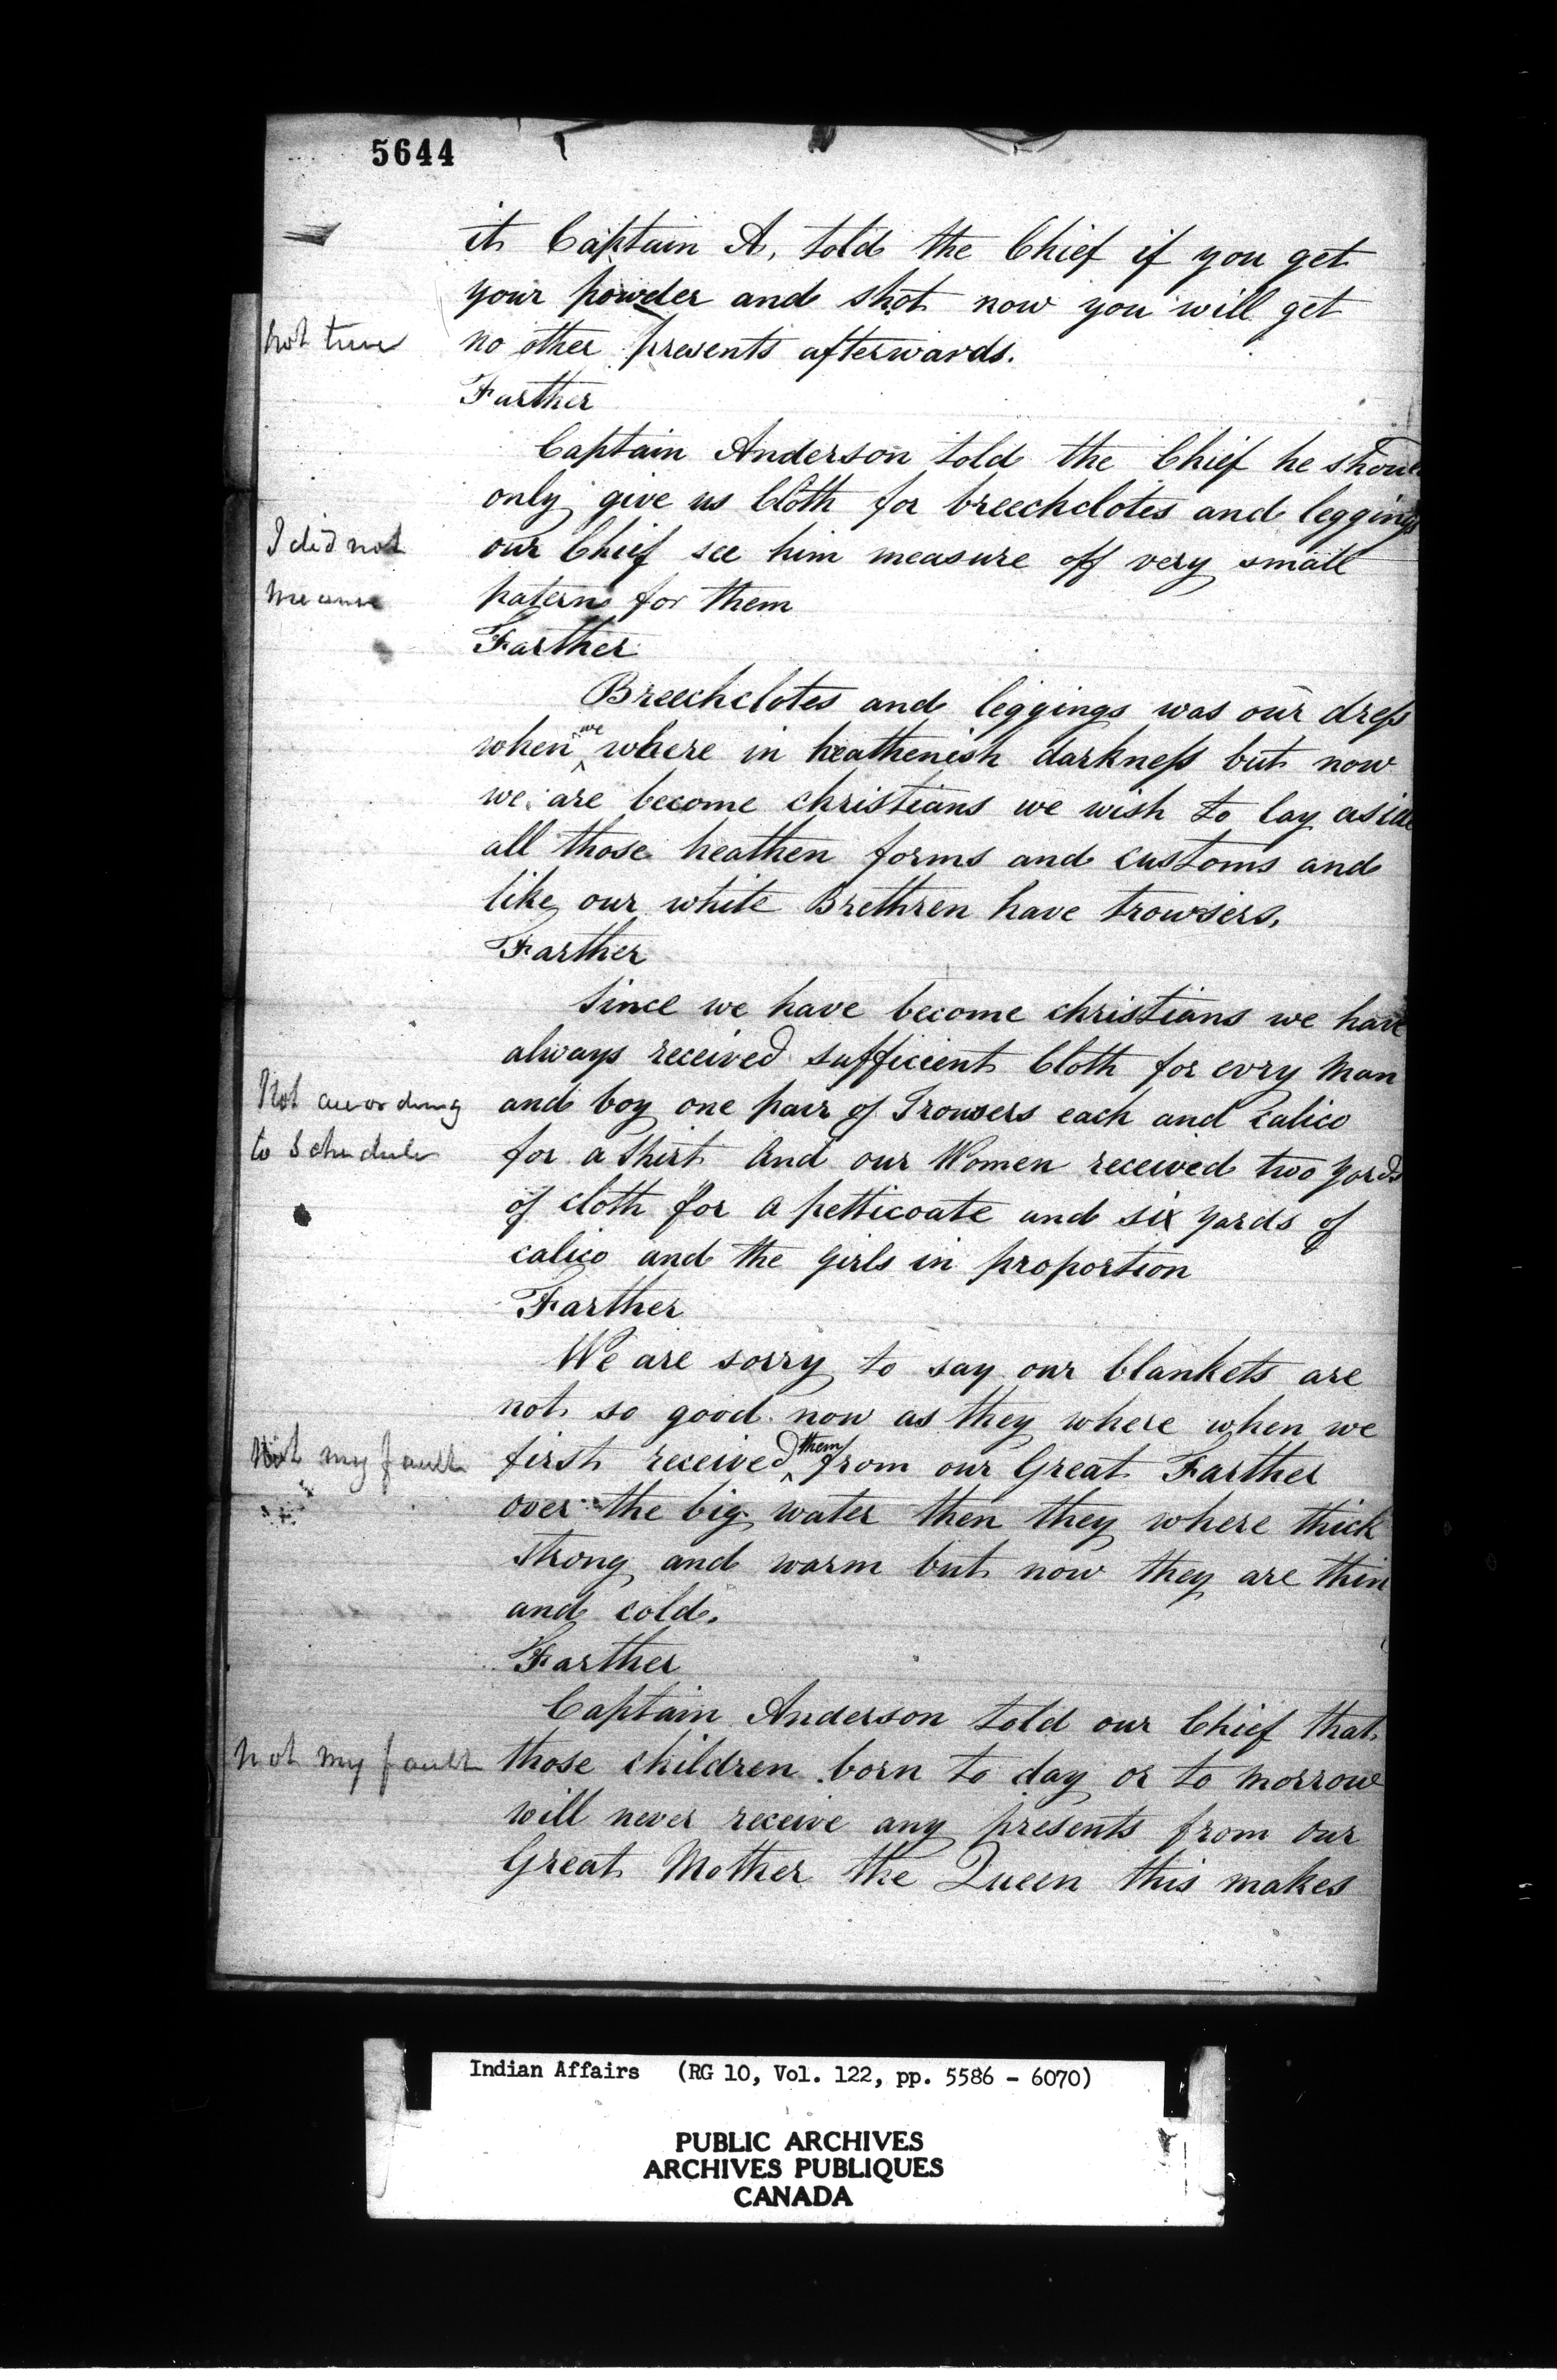 5644
it Captain A, told the Chief if you get
your powder and shot now you will get
not true
no other presents afterwards.
Farther
Captain Anderson told the Chief he should
only give us Cloth for breechclotes and leggings
I did not
our Chief see him measure off very small
measure
paterns for them
Farther
Breechclotes and leggings was our dress
when we where in heathenish darkness but now
we are become christians we wish to lay aside
all those heathen forms and customs and
like our white Brethren have trowsers,
Farther
Since we have become christians we have
always received sufficient Cloth for evry Man
Not according
and boy one pair of Trowsers each and Calico
to Schedule
for a Shirt And our Women received two yards
of cloth for a petticoate and six yards of
calico and the Girls in proportion
Farther
We are sorry to say our blankets are
not so good now as they where when we
Not my fault
first received them from our Great Farther
over the big water then they where thick
strong and warm but now they are thin
and cold.
Farther
Captain Anderson told our Chief that
not my fault
those children born to day or to morrow
will never receive any presents from our
Great Mother the Queen this makes
Indian Affairs (RG 10, Vol. 122, pp. 5586 - 6070)
PUBLIC ARCHIVES
ARCHIVES PUBLIQUES
CANADA